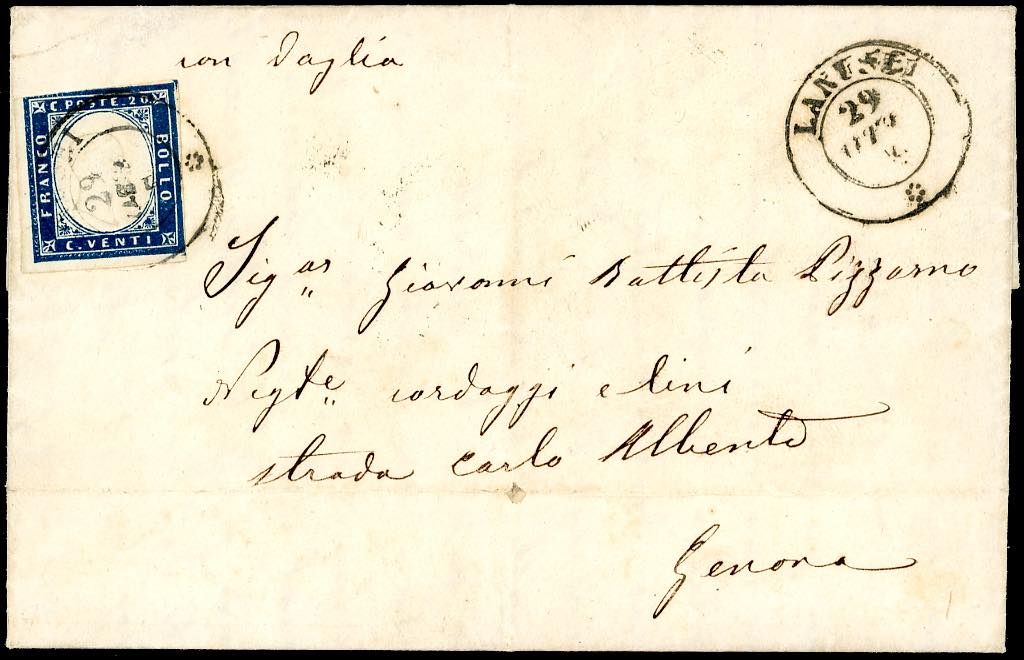 con Vaglia
C. POSTE. 20.
FRANCO
BOLLO
C. VENTI
29
LANUSEI
29
Sig.or Giovanni Battista Pizzorno
Negte. cordaggi e lini
strada Carlo Alberto
Genova